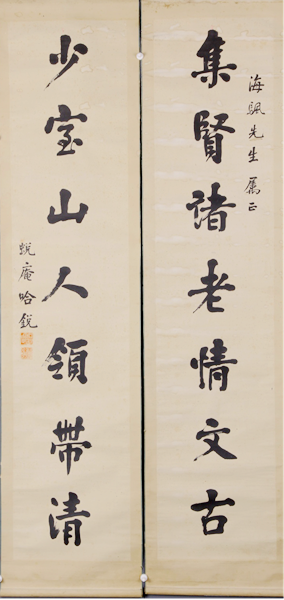 海颿先生属正
集賢諸老情文古
少室山人領帶清
蜕庵哈銳